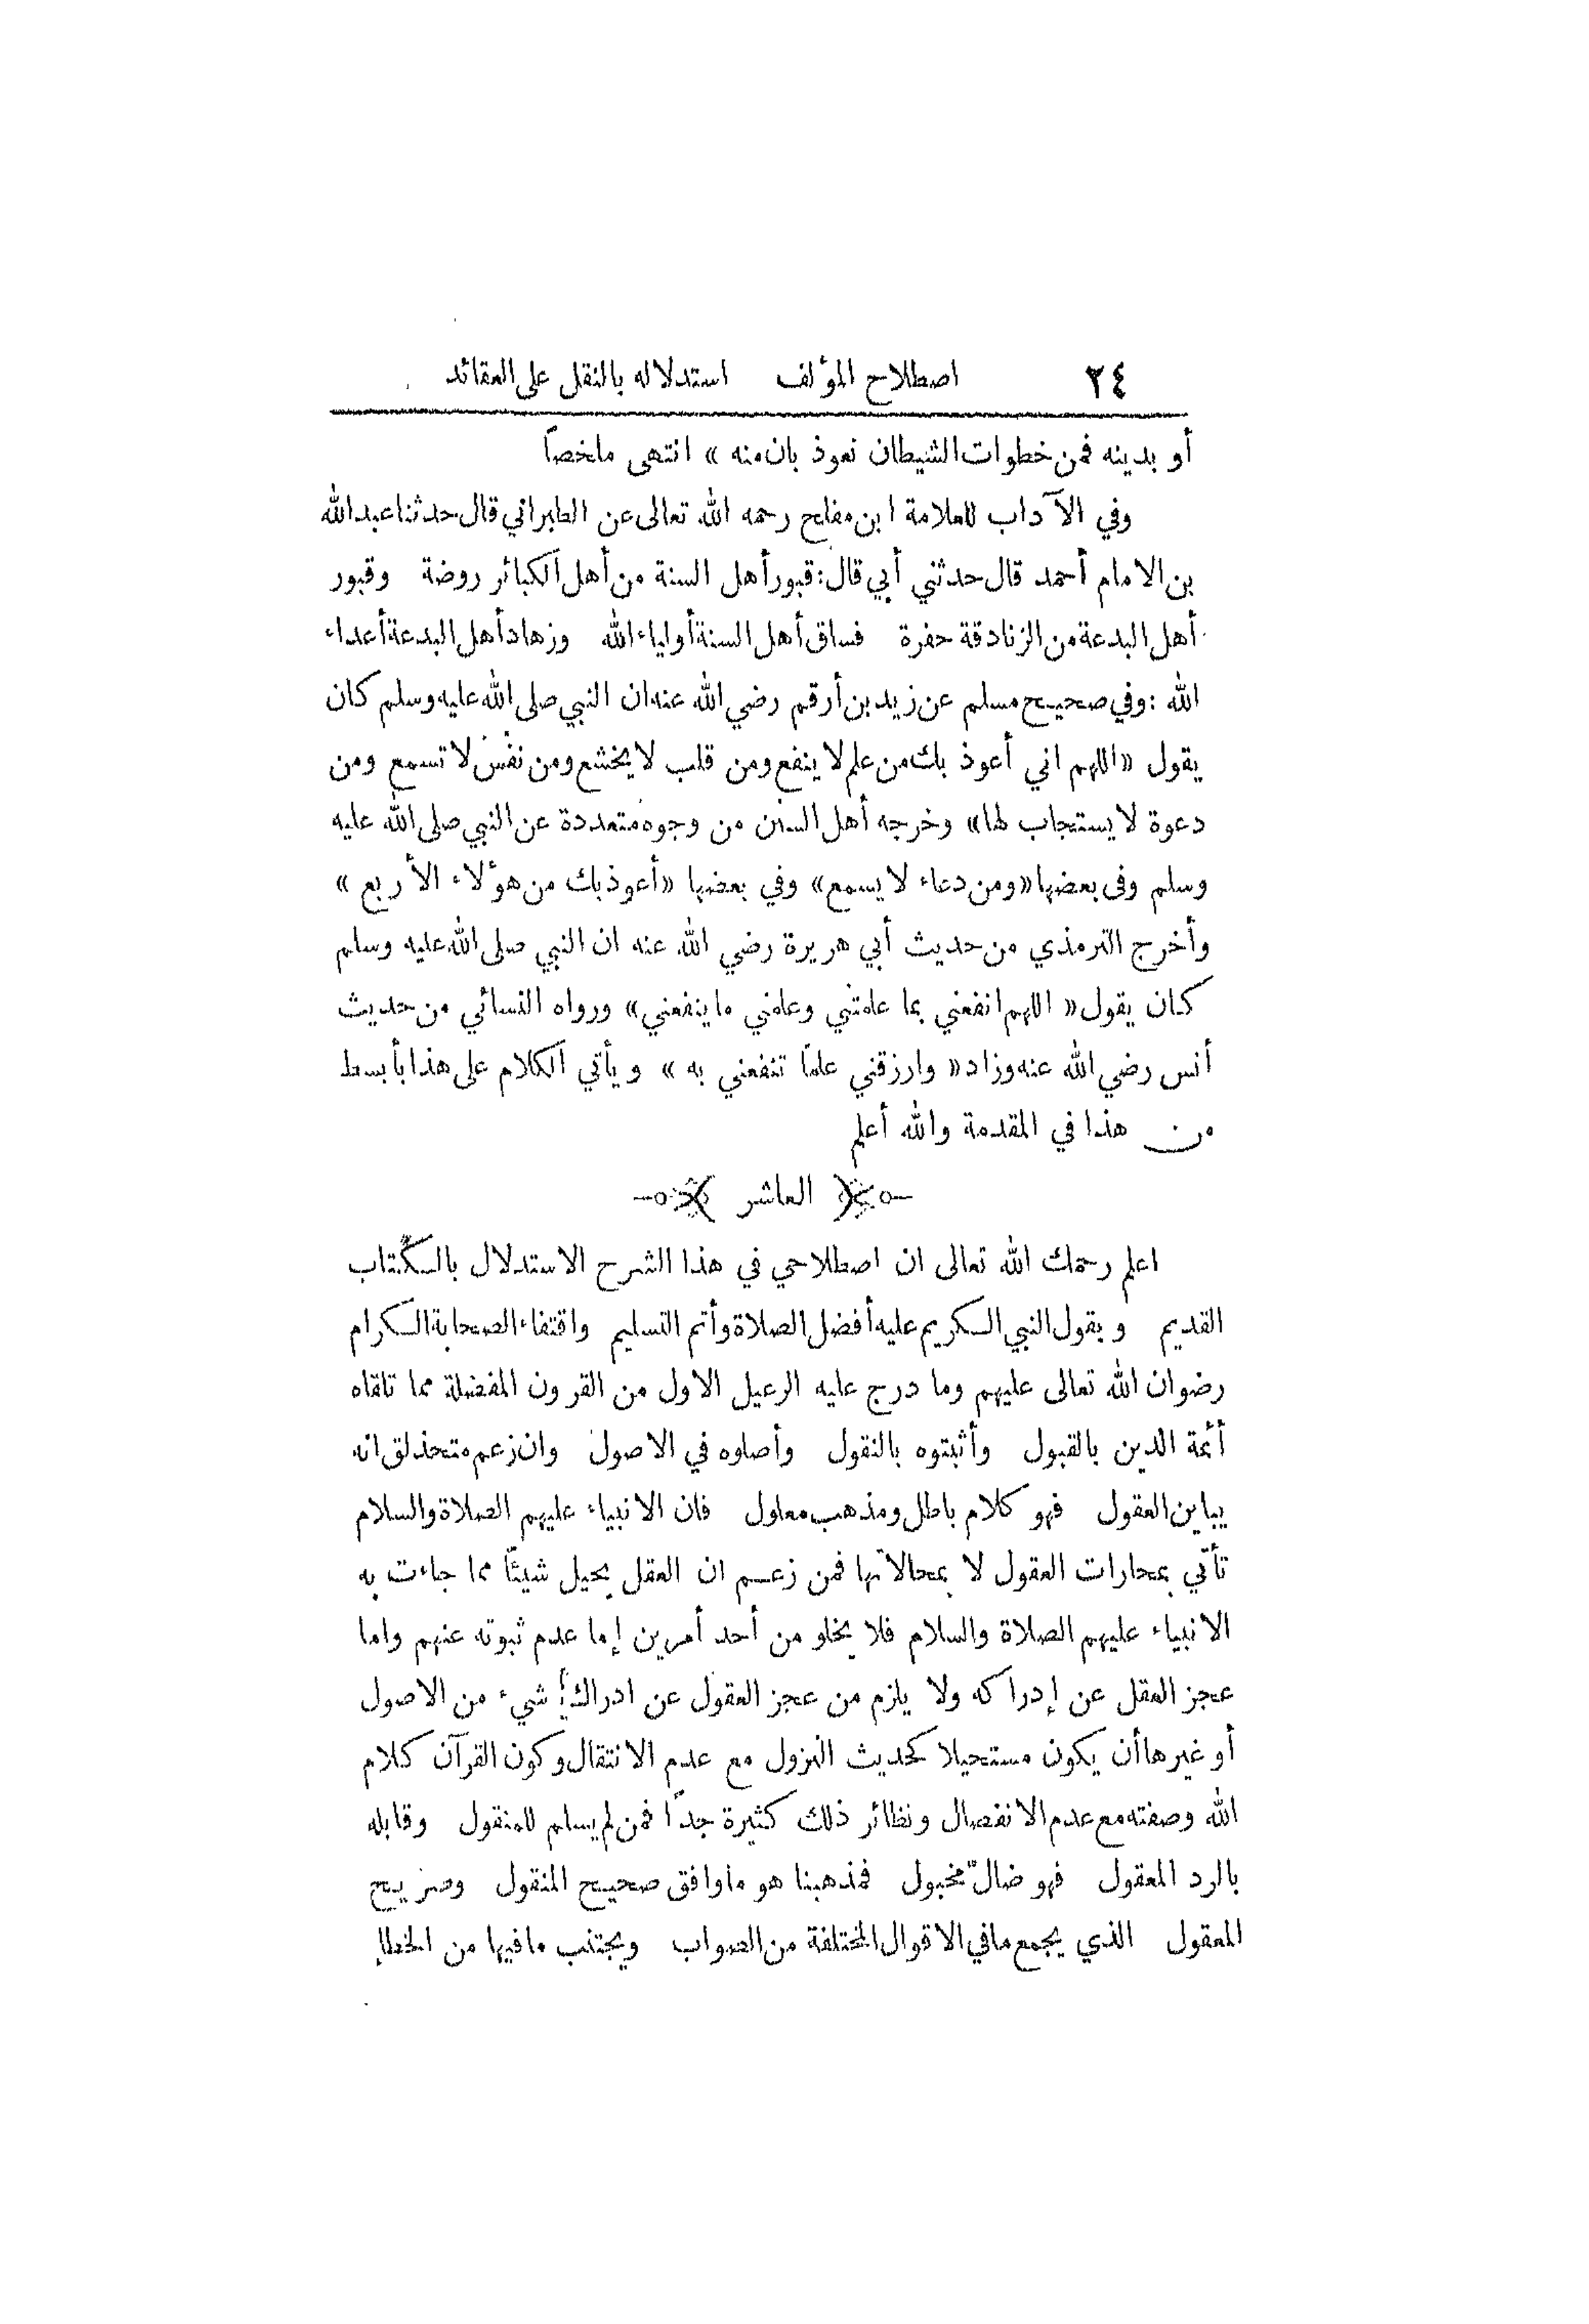 ٢٤ اصطلاح المؤلف استدلاله بالنقل على العقائد
أو بدينه فمن خطوات الشيطان نعوذ بالله منه » انتهى ملخصاً
وفي الآداب للعلامة ابن مفلح رحمه الله تعالى عن الطبراني قال حدثنا عبد الله
بن الامام أحمد قال حدثني أبي قال: قبور أهل السنة من أهل الكبائر روضة وقبور
أهل البدعة من الزنادقة حفرة فساق أهل السنة أولياء الله وزهاد أهل البدعة أعداء
الله : وفي صحيح مسلم عن زيد بن أرقم رضي الله عنه ان النبي صلى الله عليه وسلم كان
يقول « اللهم اني أعوذ بك من علم لا ينفع ومن قلب لا يخشع ومن نفس لا تسمع ومن
دعوة لا يستجاب لها» وخرجه أهل السنن من وجوه متعددة عن النبي صلى الله عليه
وسلم وفى بعضها «ومن دعاء لا يسمع» وفي بعضها «أعوذ بك من هؤلاء الأربع »
وأخرج الترمذي من حديث أبي هريرة رضي الله عنه ان النبي صلى الله عليه وسلم
كان يقول « اللهم انفعني بما علمتني وعلمني ما ينفعني» ورواه النسائي من حديث
أنس رضي الله عنه وزاد « وارزقني علماً تنفعني به » ويأتي الكلام على هذا بأبسط
من هذا في المقدمة والله أعلم
﴿ العاشر ﴾
اعلم رحمك الله تعالى ان اصطلاحي في هذا الشرح الاستدلال بالكتاب
القديم وبقول النبي الكريم عليه أفضل الصلاة وأتم التسليم واقتفاء الصحابة الكرام
رضوان الله تعالى عليهم وما درج عليه الرعيل الاول من القرون المفضلة مما تلقاه
أئمة الدين بالقبول وأثبتوه بالنقول وأصلوه في الاصول وان زعم متحذلق انه
يباين العقول فهو كلام باطل ومذهب معلول فان الانبياء عليهم الصلاة والسلام
تأتي بمحارات العقول لا بمحالاتها فمن زعم ان العقل يحيل شيئاً مما جاءت به
الانبياء عليهم الصلاة والسلام فلا يخلو من أحد أمرين إما عدم ثبوته عنهم واما
عجز العقل عن إدراكه ولا يلزم من عجز العقول عن ادراك شيء من الاصول
أو غيرها أن يكون مستحيلا كحديث النزول مع عدم الانتقال وكون القرآن كلام
الله وصفته مع عدم الانفصال ونظائر ذلك كثيرة جداً فمن لم يسلم للمنقول وقابله
بالرد المعقول فهو ضالّ مخبول فمذهبنا هو ما وافق صحيح المنقول وصريح
المعقول الذي يجمع ما في الاقوال المختلفة من الصواب ويجتنب ما فيها من الخطإ